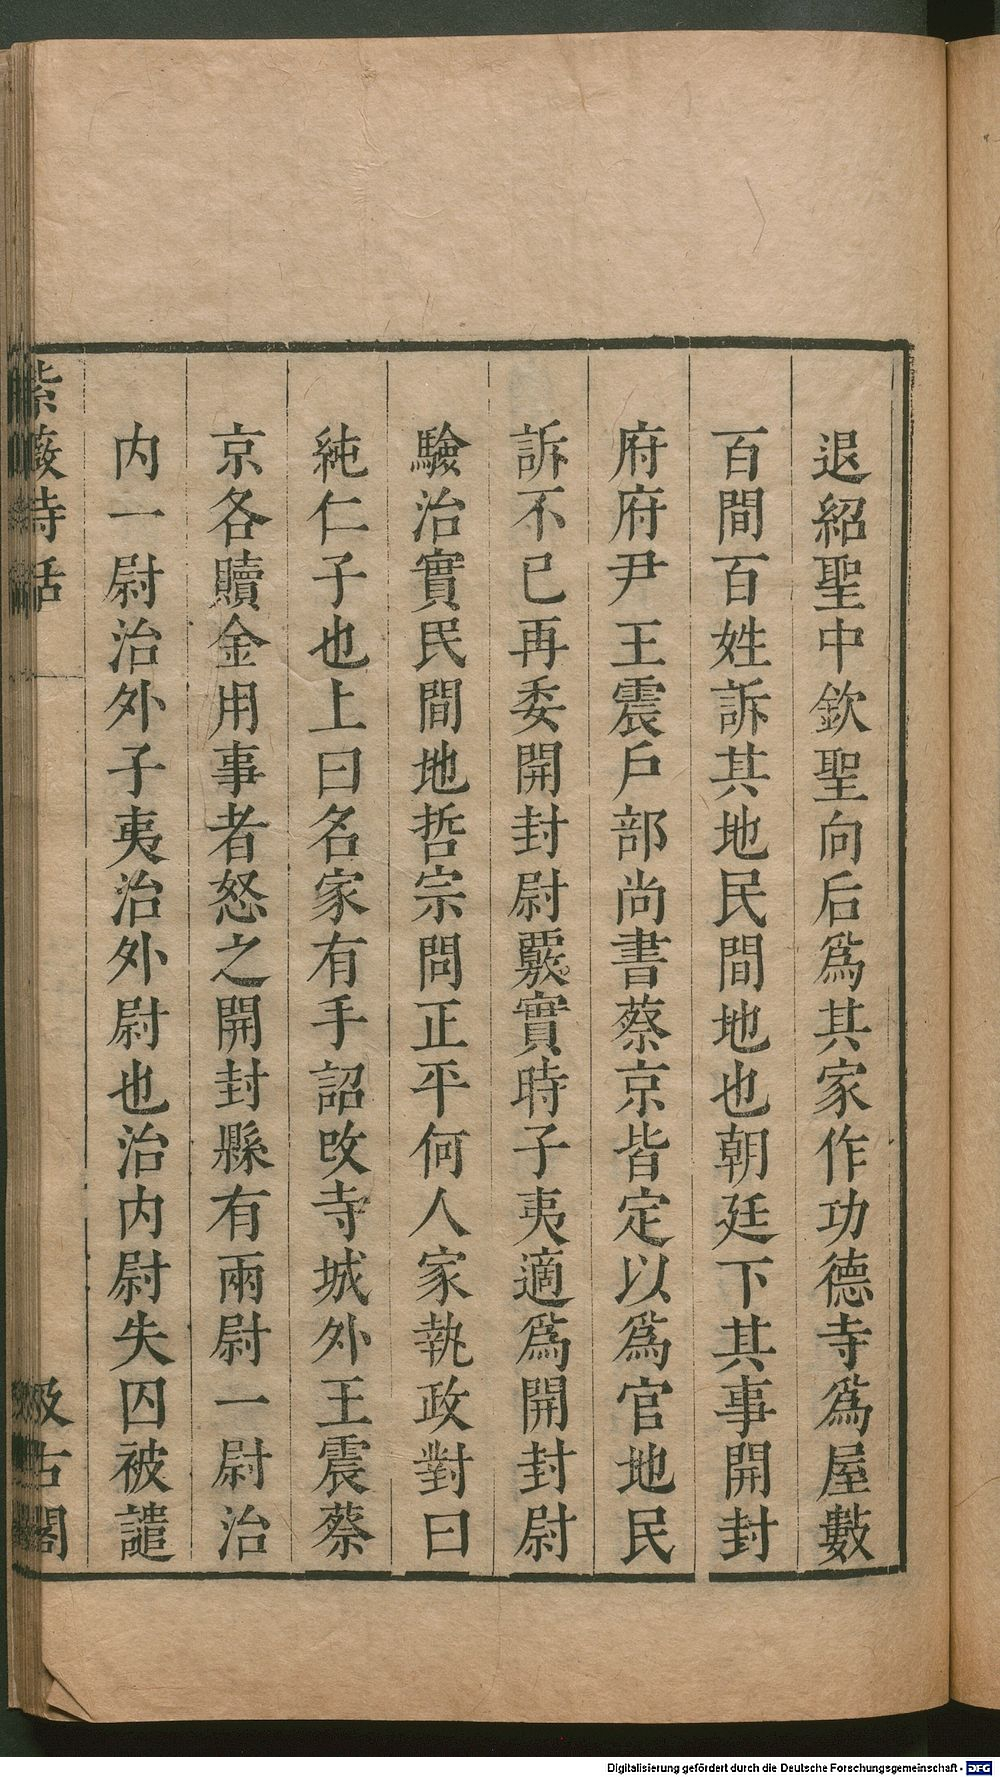 退紹聖中欽聖向后爲其家作功德寺爲屋數
百間百姓訴其地民間地也朝廷下其事開封
府府尹王震戶部尚書蔡京皆定以爲官地民
訴不已再委開封尉覈實時子夷適爲開封尉
驗治實民間地哲宗問正平何人家執政對曰
純仁子也上曰名家有手詔改寺城外王震蔡
京各贖金用事者怒之開封縣有兩尉一尉治
内一尉治外子夷治外尉也治内尉失囚被譴
紫薇詩話
汲古閣
Digitalisierung gefördert durch die Deutsche Forschungsgemeinschaft - DFG